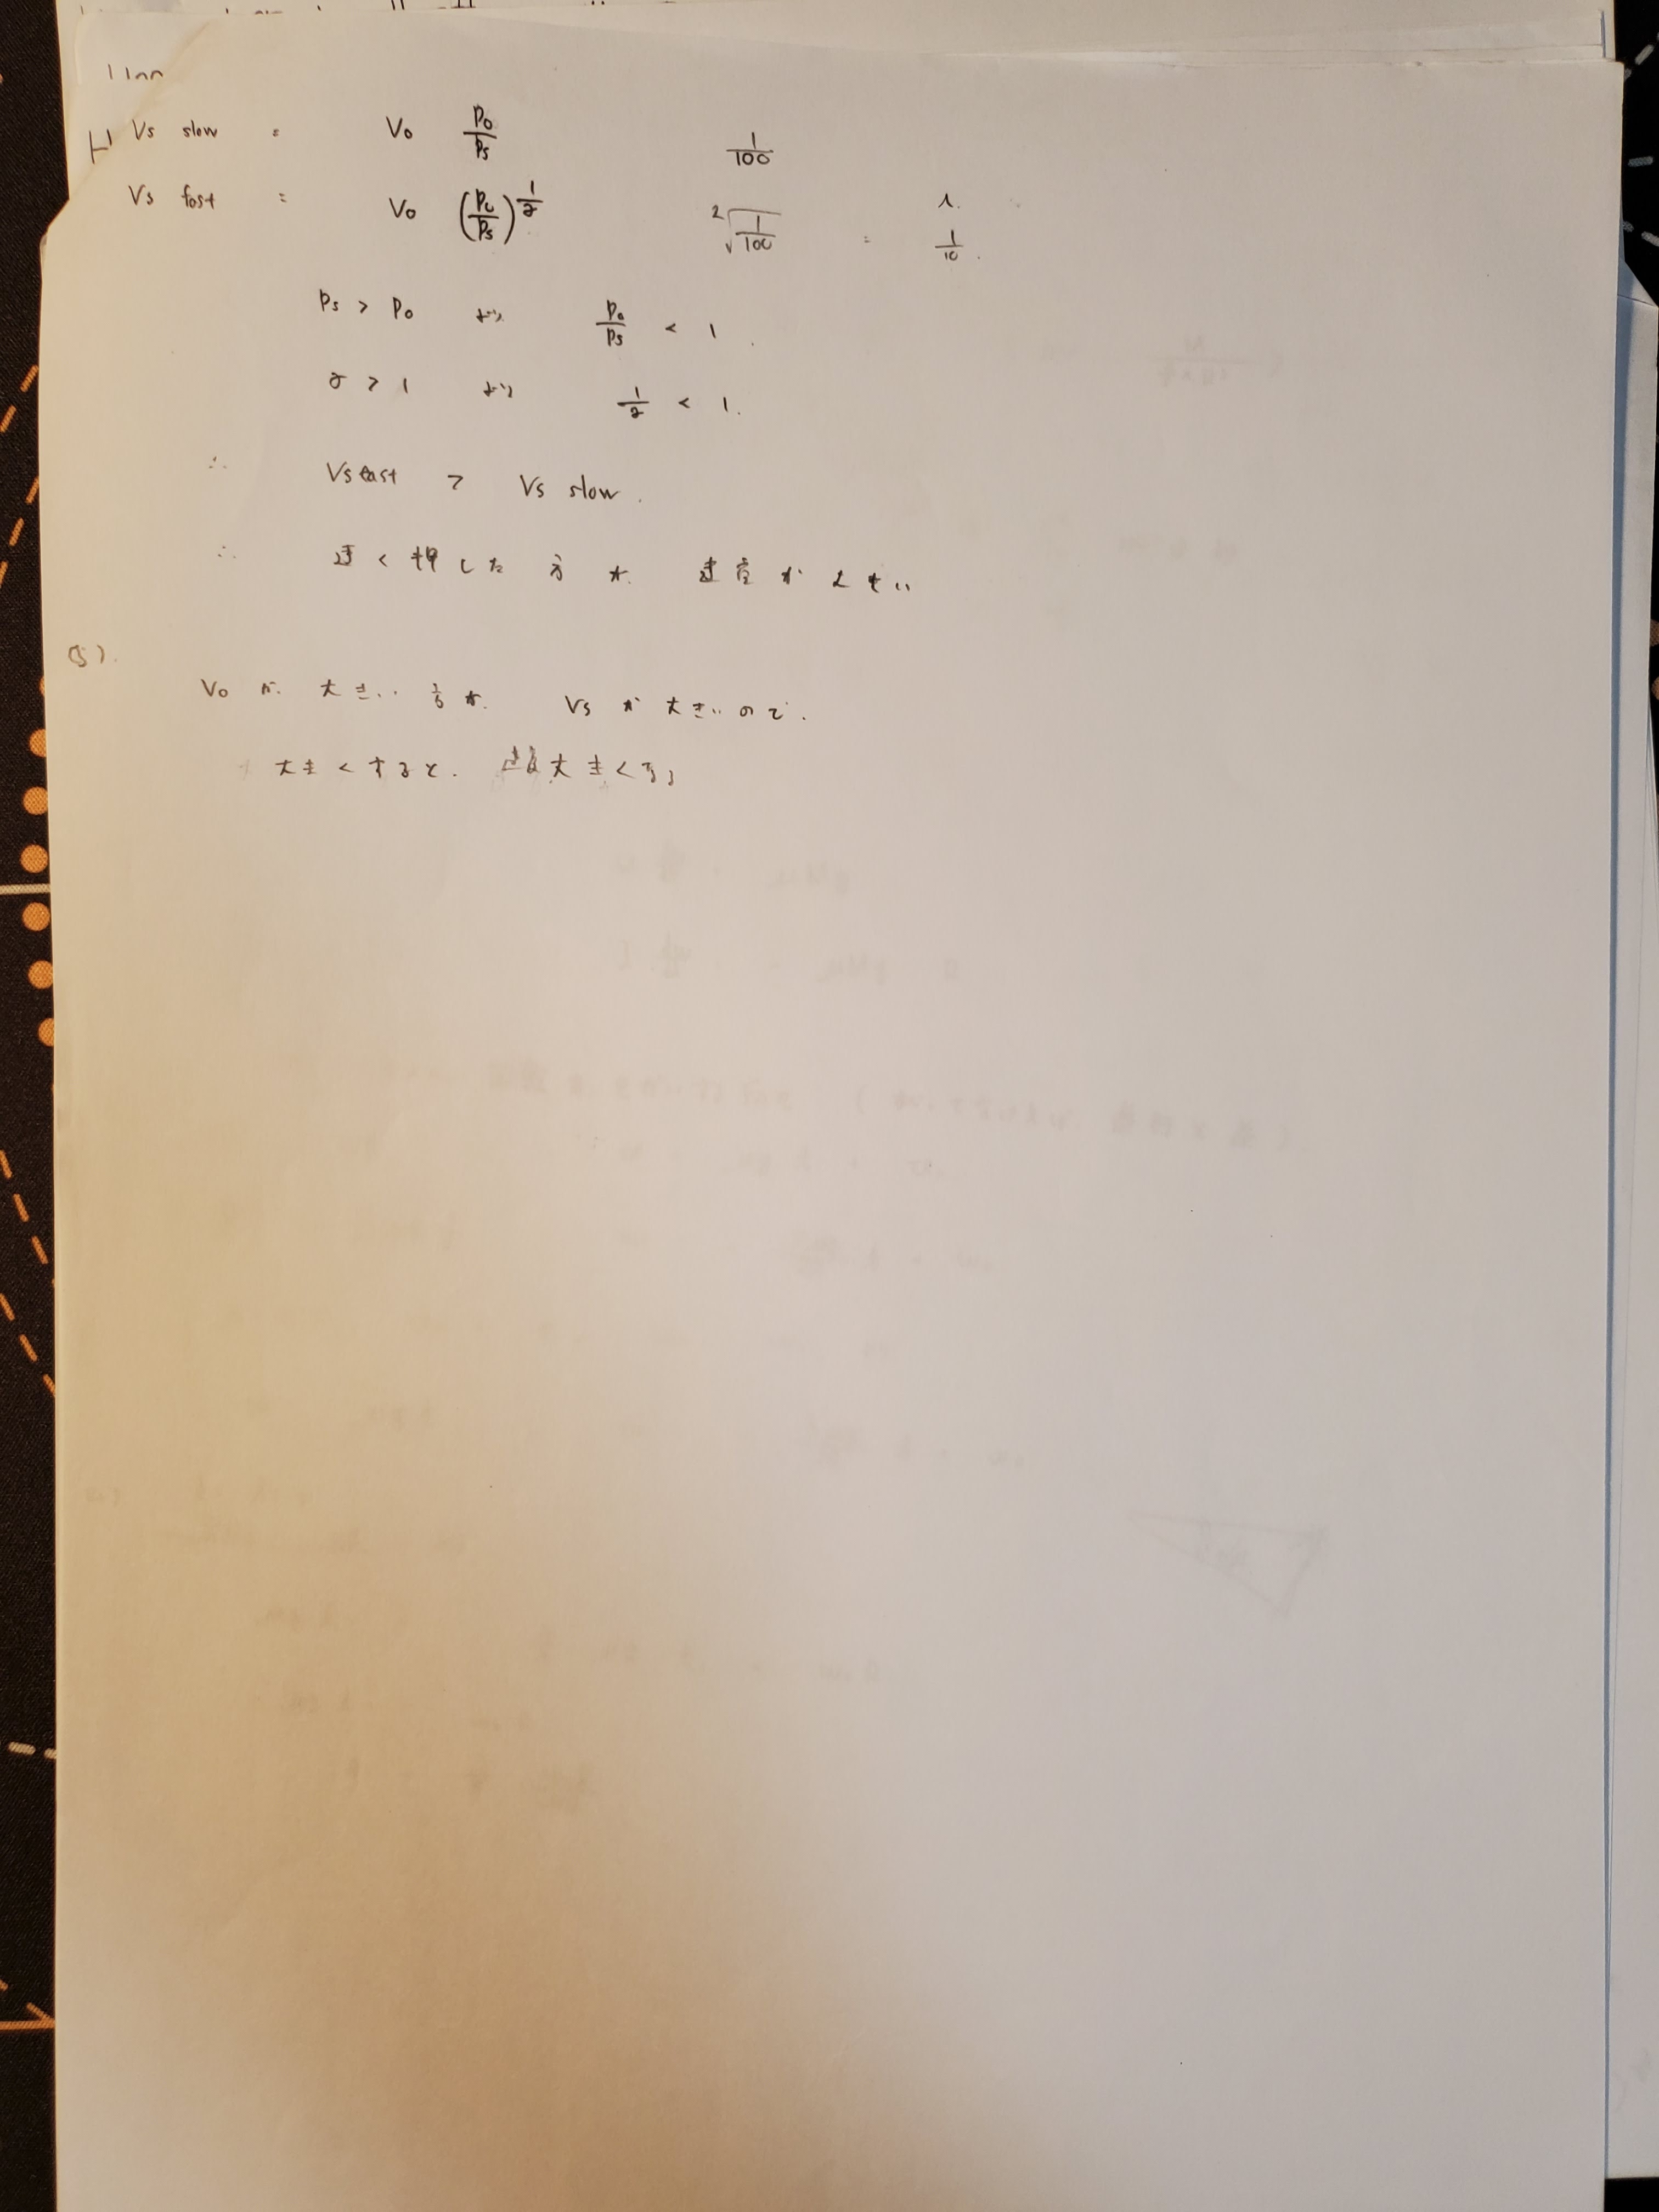 Vs slow = V₀ P₀/Ps 1/100
Vs fast = V₀ (P₀/Ps)^(1/γ) ²√(1/100) = 1/10.
Ps > P₀ より P₀/Ps < 1.
γ > 1 より 1/γ < 1.
∴ Vs fast > Vs slow.
∴ 速く押した方が 速度が 大きい
(5).
V₀ が 大きい 方が Vs が 大きいので.
大きくすると. 速度大きくなる